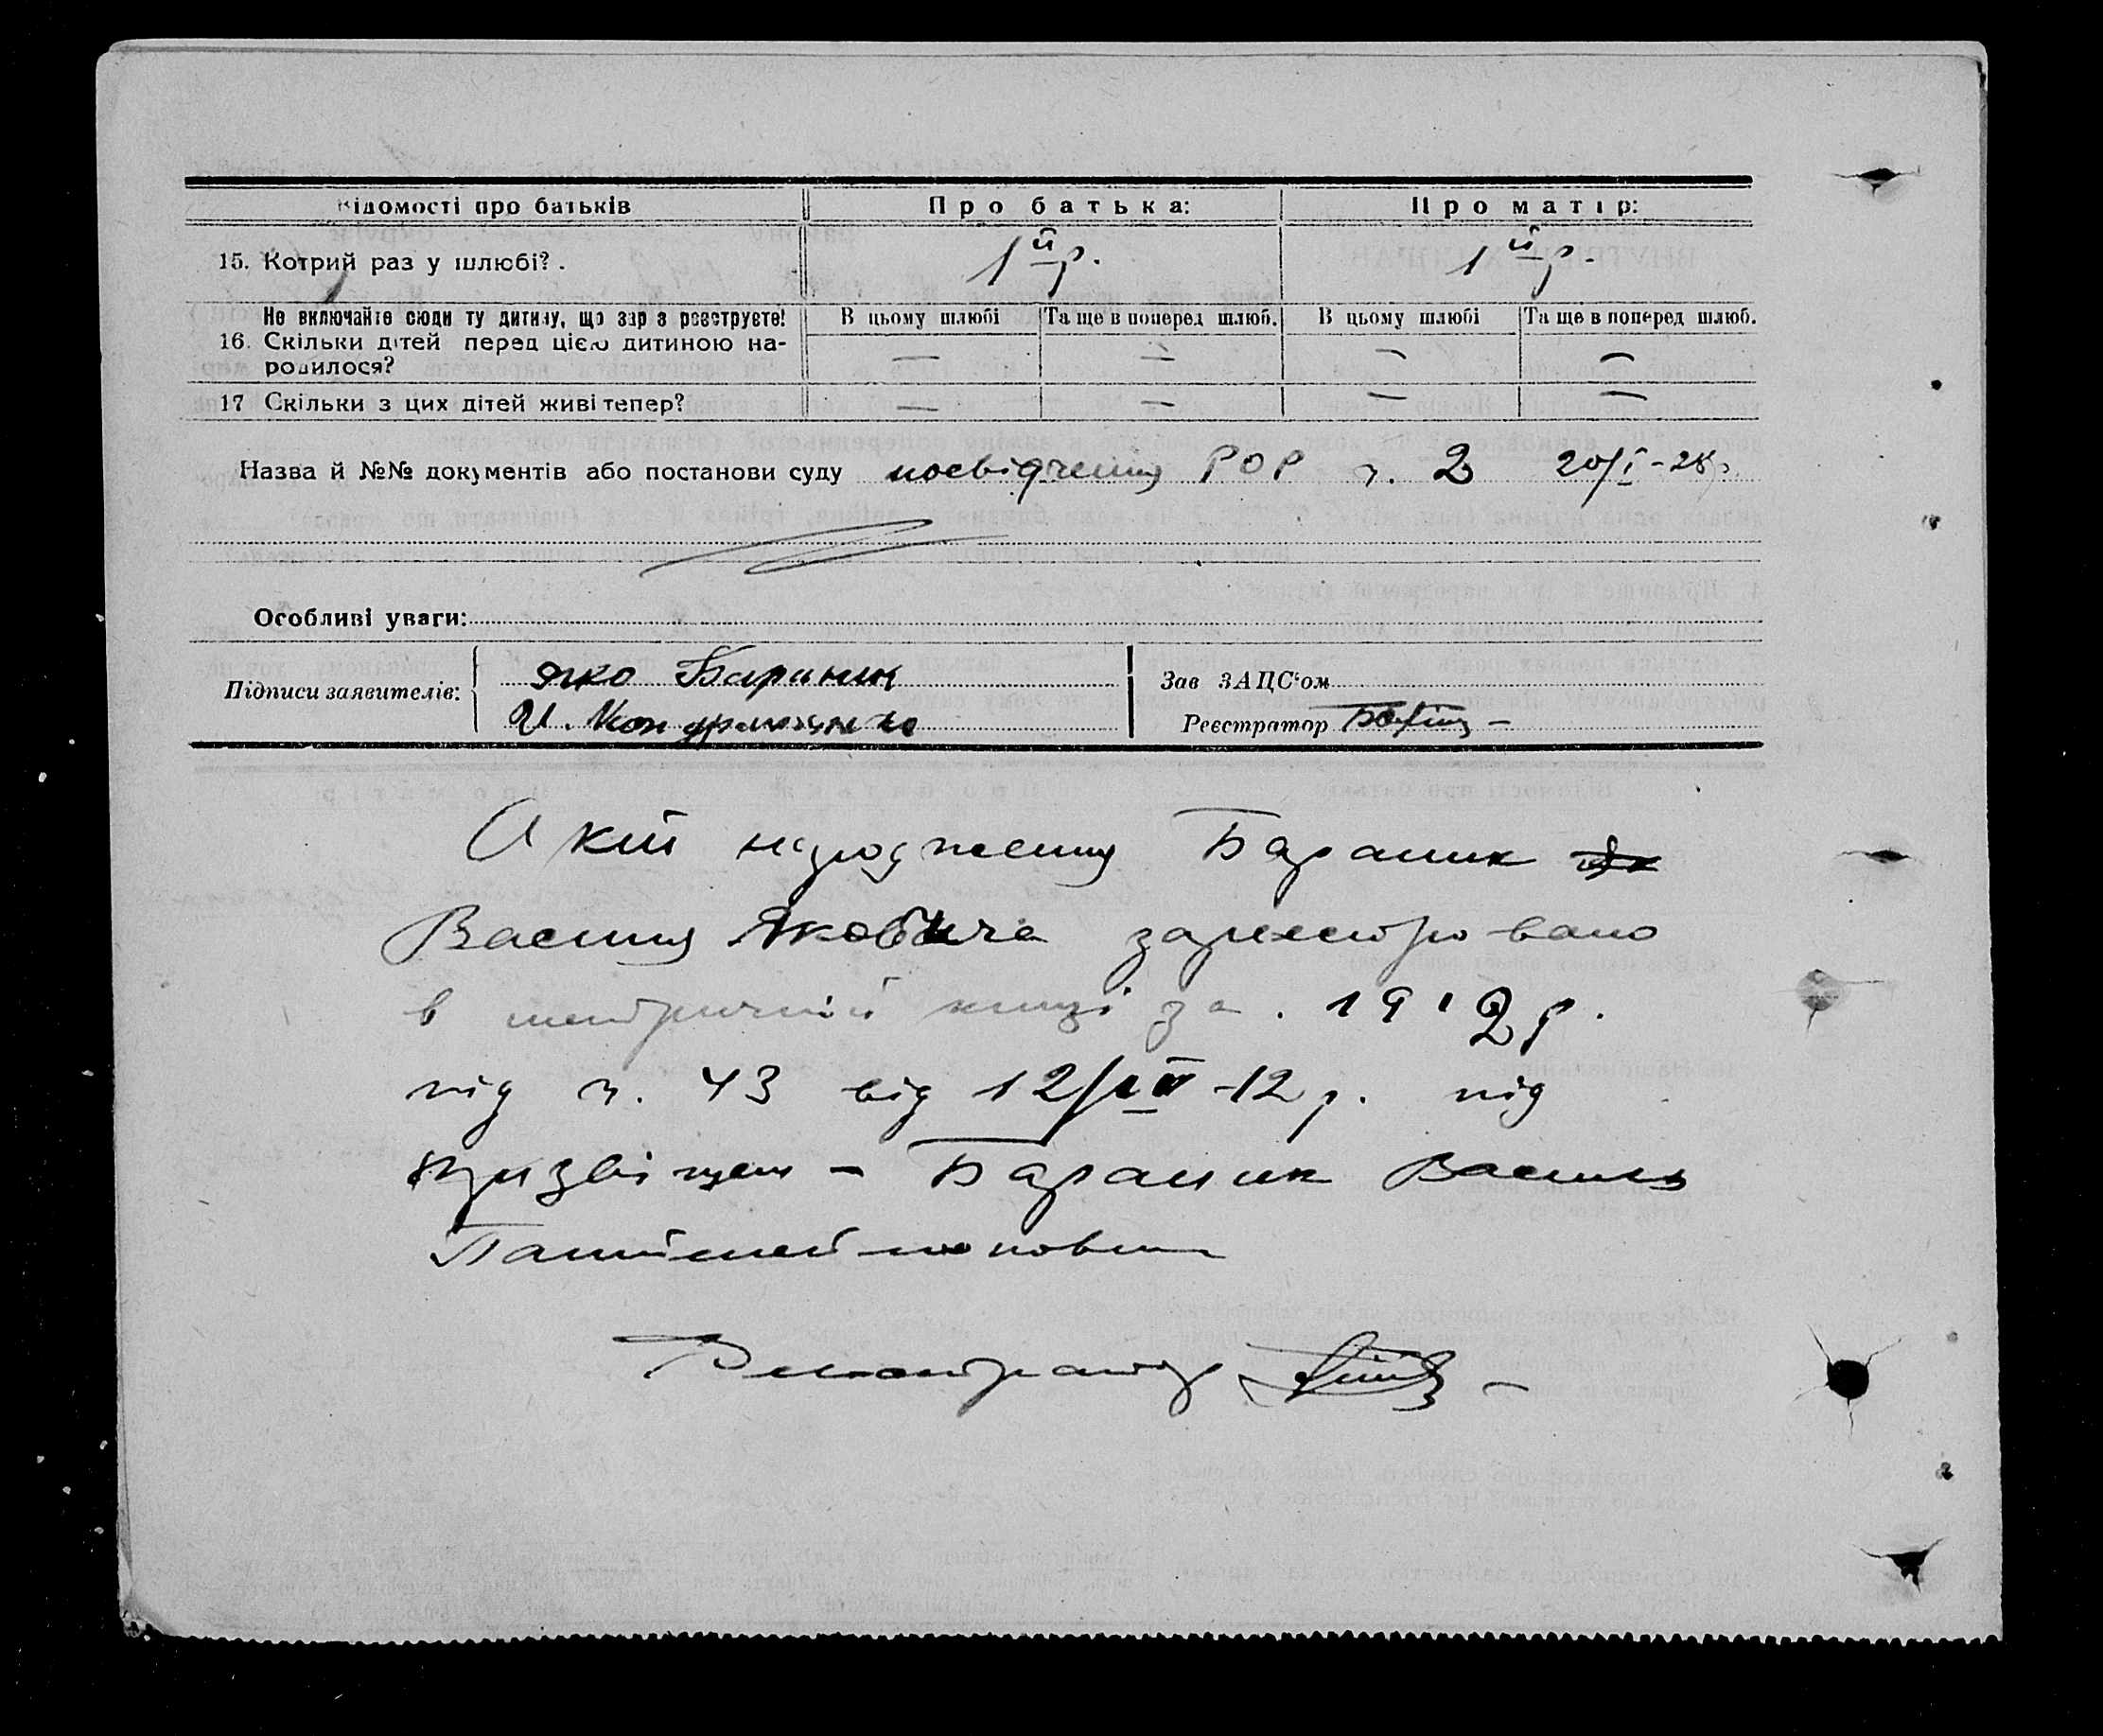 Відомості про батьків Про батька: Про матір:
15. Котрий раз у шлюбі? . 1й р. 1й р.
Не включайте сюди ту дитину, що зараз реєструєте! В цьому шлюбі Та ще в поперед шлюб. В цьому шлюбі Та ще в поперед шлюб.
16. Скільки дітей перед цією дитиною на- — — — —
родилося?
17 Скільки з цих дітей живі тепер? — — — —
Назва й №№ документів або постанови суду посвідчення РОР ч. 2 20/I-28р.
Особливі уваги:
Підписи заявителів: Яко Бараник
И. Кондратенко
Зав ЗАЦС'ом
Реєстратор
Акт народження Бараник
Василя Яковича зареестровано
в метричній книзі за . 1912 р.
під ч. 43 від 12/IV-12 р. під
призвіщем – Бараник Василь
Пантелеймонович
Реєстратор